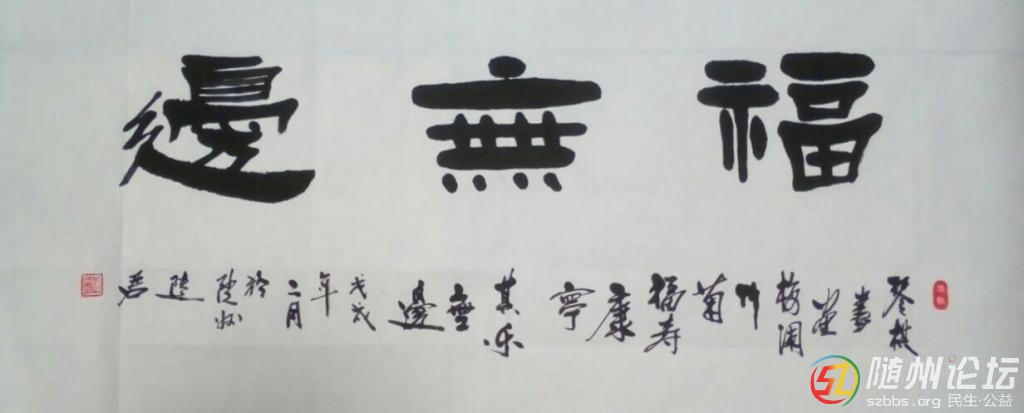 福無邊
琴棋書畫梅蘭竹菊福寿康寧其乐無邊戊戌年二月於随州
随州论坛
szbbs.org 民生·公益